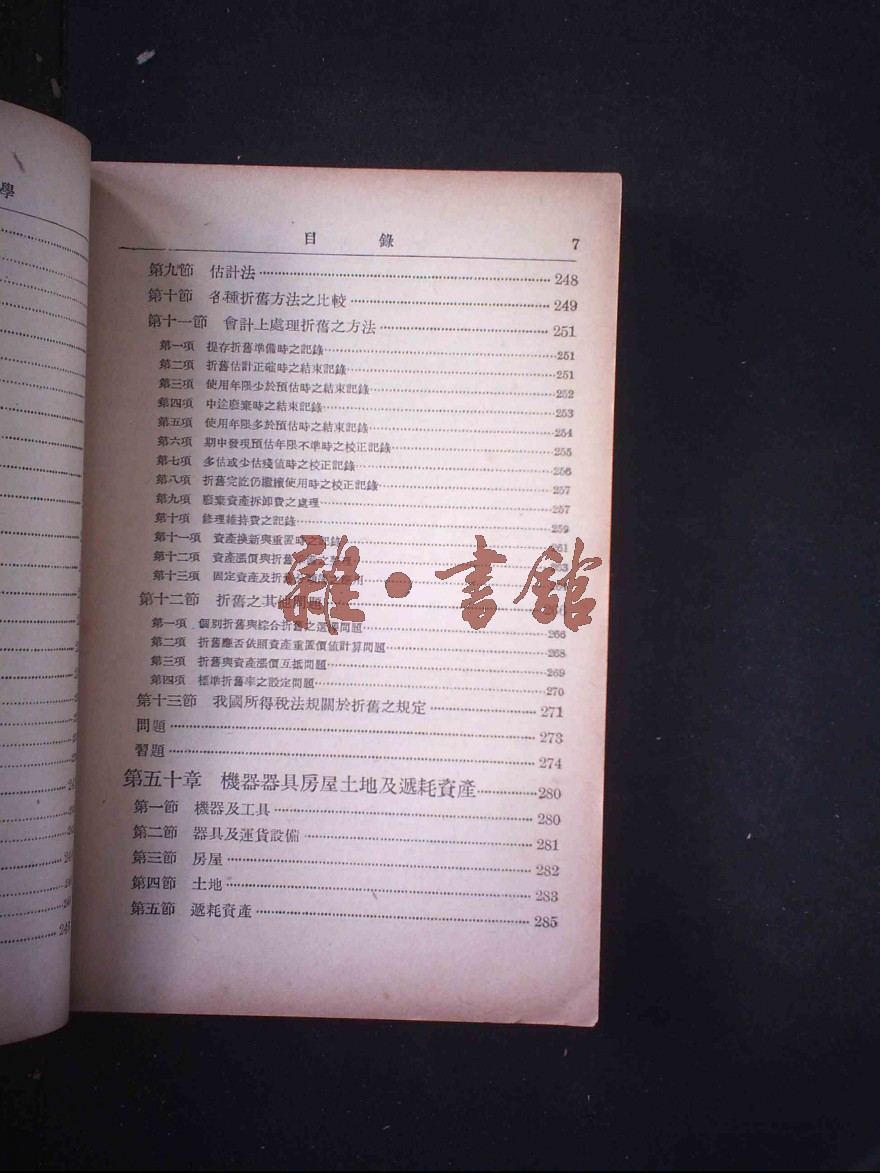 學
目 錄 7
第九節 估計法 248
第十節 各種折舊方法之比較 249
第十一節 會計上處理折舊之方法 251
第一項 提存折舊準備時之記錄 251
第二項 折舊估計正確時之結束記錄 251
第三項 使用年限少於預估時之結束記錄 252
第四項 中途廢棄時之結束記錄 253
第五項 使用年限多於預估時之結束記錄 254
第六項 期中發現預估年限不準時之校正記錄 255
第七項 多估或少估殘值時之校正記錄 256
第八項 折舊完訖仍繼續使用時之校正記錄 257
第九項 廢棄資產拆卸費之處理 257
第十項 修理維持費之記錄 259
第十一項 資產換新與重置時之記錄 261
第十二項 資產漲價與折舊 263
第十三項 固定資產及折舊
第十二節 折舊之其他問題 266
第一項 個別折舊與綜合折舊之選擇問題 266
第二項 折舊應否依照資產重置價值計算問題 268
第三項 折舊與資產漲價互抵問題 269
第四項 標準折舊率之設定問題 270
第十三節 我國所得稅法規關於折舊之規定 271
問題 273
習題 274
第五十章 機器器具房屋土地及遞耗資產 280
第一節 機器及工具 280
第二節 器具及運貨設備 281
第三節 房屋 282
第四節 土地 283
第五節 遞耗資產 285
雜·書館